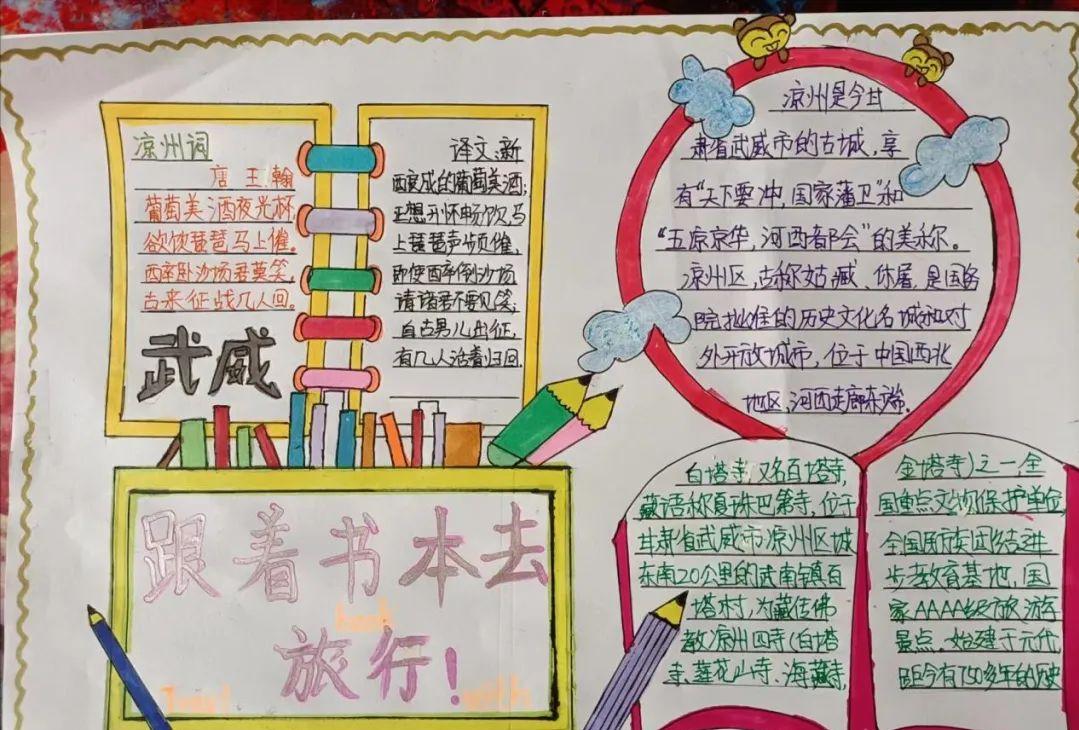 凉州词
唐 王翰
葡萄美酒夜光杯,
欲饮琵琶马上催。
西卒卧沙场君莫笑,
古来征战几人回。
武威
译文:新
酉交成的葡萄美酒;
正想开怀畅饮,马
上琵琶声频催,
即使酉卒倒沙场
请诸君不要见笑,
自古男儿出征,
有几人活着归回.
凉州是今甘
肃省武威市的古城,享
有“天下要冲,国家藩卫”和
“五凉京华,河西都会”的美称。
凉州区,古称姑臧、休屠,是国务
院批准的历史文化名城和对
外开放城市,位于中国西北
地区,河西走廊东端.
白塔寺,又名百塔寺,
藏语称夏珠巴第寺,位于
甘肃省武威市凉州区城
东南20公里的武南镇百
塔村,为藏传佛
教凉州四寺(白塔
寺、莲花山寺、海藏寺,
金塔寺)之一全
国重点文物保护单位
全国民族团结进
步教育基地,国
家AAAA级旅游
景点.始建于元代
距今有750多年的历史
跟着书本去
旅行!
book
Travel
with